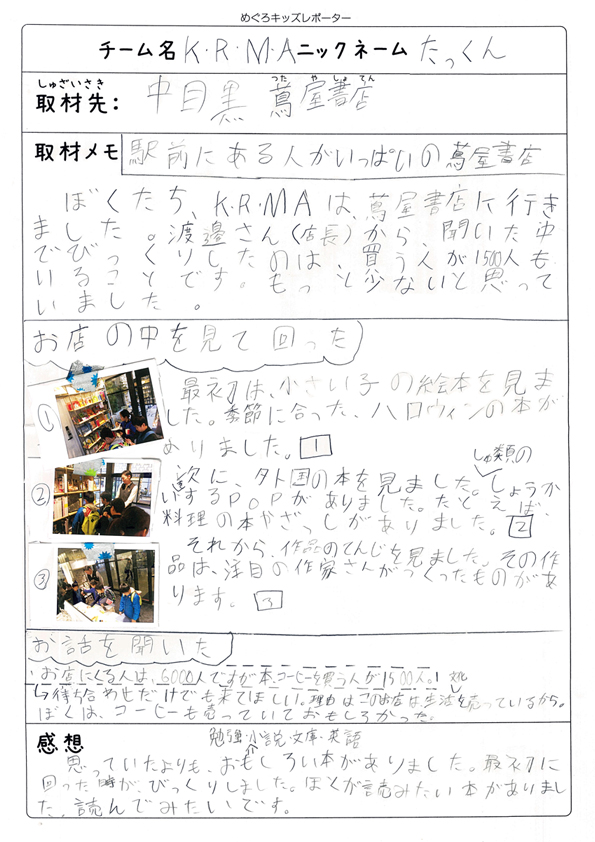 めぐろキッズレポーター
チーム名 K・R・M・A ニックネーム たっくん
しゅざいさき
つた や しょ てん
取材先: 中目黒 蔦屋書店
取材メモ 駅前にある人がいっぱいの蔦屋書店
ぼくたち、K・R・M・Aは、蔦屋書店に行き
ました。渡邉さん(店長)から、聞いた中
でびっくりしたのは、買う人が1500人も
いることです。もっと少ないと思って
いました。
お店の中を見て回った
① 最初は、小さい子の絵本を見ま
した。季節に合った、ハロウィンの本が
ありました。1
しゅ類の
② 次に、外国の本を見ました。しょうか
いするPOPがありました。たとえば、
料理の本やざっしがありました。2
③ それから、作品のてんじを見ました。その作
品は、注目の作家さんがつくったものがあ
ります。3
お話を聞いた
・お店にくる人は、6000人ですが本、コーヒーを買う人が1500人。
文化
↳待ち合わせだけでも来てほしい。理由はこのお店は、生活を売っているから。
ぼくは、コーヒーも売っていておもしろかった。
感想
勉強・小説・文庫・英語
思っていたよりも、おもしろい本がありました。最初に
回った時が、びっくりしました。ぼくが読みたい本がありまし
た。読んでみたいです。